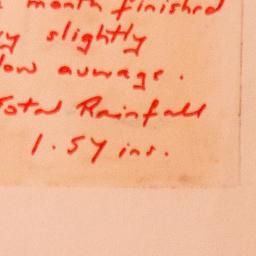 month finished
slightly
low average.
Total Rainfall
1.57 ins.